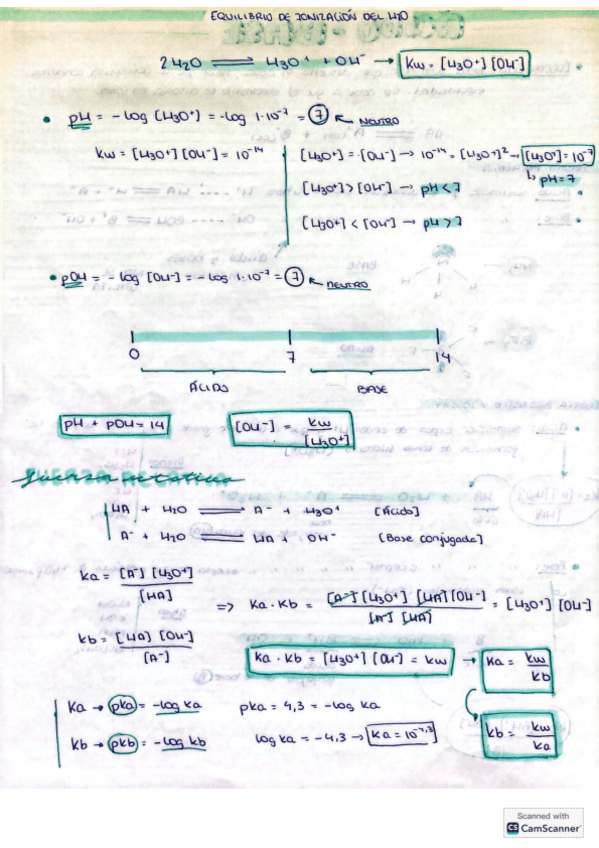 EQUILIBRIO DE IONIZACIÓN DEL H2O
2H2O ⇌ H3O+ + OH- → Kw = [H3O+] [OH-]
• pH = - log [H3O+] = -log 1·10-7 = 7 ← NEUTRO
Kw = [H3O+] [OH-] = 10-14
[H3O+] = [OH-] → 10-14 = [H3O+]2 → [H3O+] = 10-7
↳ pH = 7
[H3O+] > [OH-] → pH < 7
[H3O+] < [OH-] → pH > 7
• pOH = - log [OH-] = - log 1·10-7 = 7 ← NEUTRO
0 7 14
ÁCIDO BASE
pH + pOH = 14
[OH-] = Kw / [H3O+]
HA + H2O ⇌ A- + H3O+ [Ácido]
A- + H2O ⇌ HA + OH- [Base conjugada]
Ka = [A-] [H3O+] / [HA]
=> Ka · Kb = [A-] [H3O+] [HA] [OH-] / [A-] [HA] = [H3O+] [OH-]
Kb = [HA] [OH-] / [A-]
Ka · Kb = [H3O+] [OH-] = Kw → Ka = Kw / Kb
Ka → pKa = -log Ka pKa = 4,3 = -log Ka
Kb → pKb = -log Kb log Ka = -4,3 → Ka = 10-4,3
Kb = Kw / Ka
Scanned with
CS CamScanner